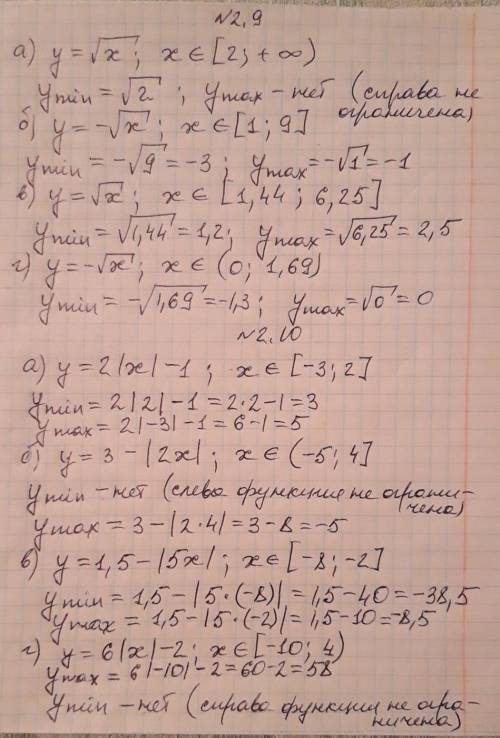 №2,9
а) y = √x ; x ∈ [2; +∞)
ymin = √2 ; ymax - нет (справа не
ограничена)
б) y = -√x ; x ∈ [1; 9]
ymin = -√9 = -3 ; ymax = -√1 = -1
в) y = √x ; x ∈ [1,44 ; 6,25]
ymin = √1,44 = 1,2; ymax = √6,25 = 2,5
г) y = -√x ; x ∈ (0; 1,69)
ymin = -√1,69 = -1,3 ; ymax = √0 = 0
№2.10
а) y = 2|x| - 1 ; x ∈ [-3; 2]
ymin = 2|2| - 1 = 2·2 - 1 = 3
ymax = 2|-3| - 1 = 6 - 1 = 5
б) y = 3 - |2x| ; x ∈ (-5; 4]
ymin - нет (слева функция не ограни-
чена)
ymax = 3 - |2·4| = 3 - 8 = -5
в) y = 1,5 - |5x| ; x ∈ [-8; -2]
ymin = 1,5 - |5·(-8)| = 1,5 - 40 = -38,5
ymax = 1,5 - |5·(-2)| = 1,5 - 10 = -8,5
г) y = 6|x| - 2 ; x ∈ [-10; 4)
ymax = 6|-10| - 2 = 60 - 2 = 58
ymin - нет (справа функция не огра-
ничена)